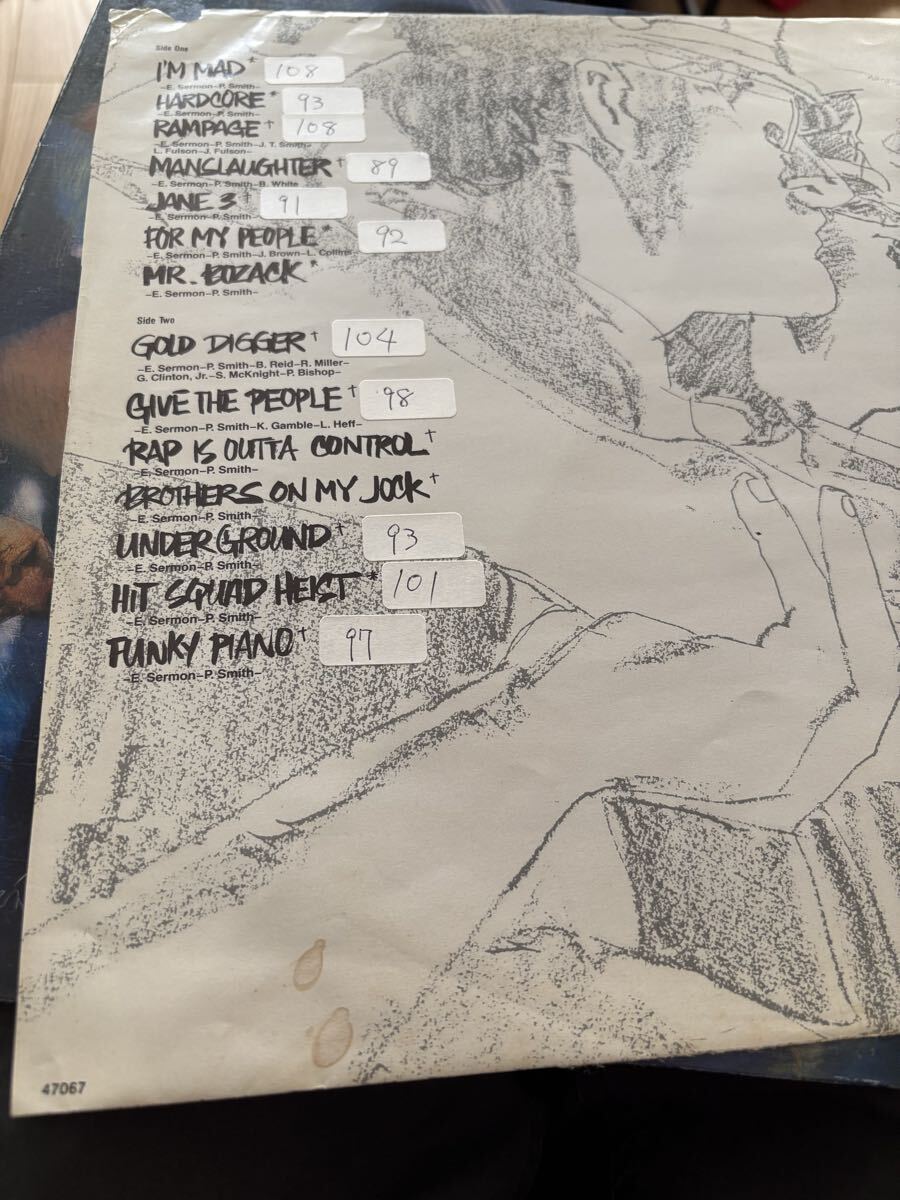 Side One
I'M MAD* 108
–E. Sermon–P. Smith–
HARDCORE* 93
–E. Sermon–P. Smith–
RAMPAGE† 108
–E. Sermon–P. Smith–J. T. Smith–
L. Fulson–J. Fulson–
MANSLAUGHTER† 89
–E. Sermon–P. Smith–B. White
JANE 3† 91
–E. Sermon–P. Smith–
FOR MY PEOPLE* 92
–E. Sermon–P. Smith–J. Brown–L. Collins–
MR. BOZACK*
–E. Sermon–P. Smith–
Side Two
GOLD DIGGER† 104
–E. Sermon–P. Smith–B. Reid–R. Miller–
G. Clinton, Jr.–S. McKnight–P. Bishop–
GIVE THE PEOPLE† 98
–E. Sermon–P. Smith–K. Gamble–L. Heff–
RAP IS OUTTA CONTROL†
–E. Sermon–P. Smith–
BROTHERS ON MY JOCK†
–E. Sermon–P. Smith–
UNDERGROUND† 93
–E. Sermon–P. Smith–
HIT SQUAD HEIST* 101
–E. Sermon–P. Smith–
FUNKY PIANO† 97
–E. Sermon–P. Smith–
47067